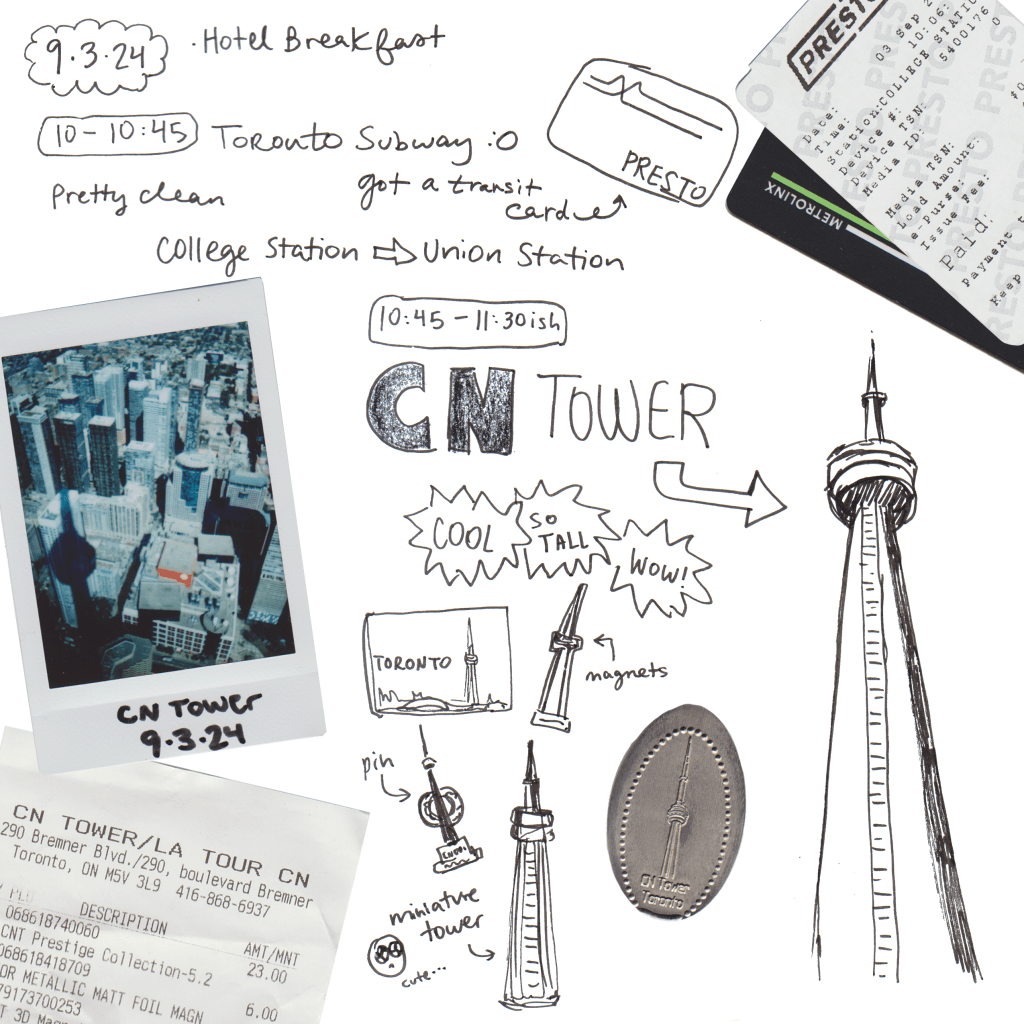 9.3.24
· Hotel Breakfast
10 - 10:45
Toronto Subway :O
Pretty clean
got a transit
card
PRESTO
College Station ⇨ Union Station
PRESTO
03 Sep 2
Date:
Time: 10:06:
Station:COLLEGE STATI
Device #: 5400176
Device TSN:
Media ID:
Media TSN:
Load Amount:
e-Purse:
Issue Fee:
Paid:
Payment
Keep
METROLINX
10:45 - 11:30ish
CN TOWER
COOL
SO
TALL
WOW!
TORONTO
magnets
pin
miniature
tower
cute...
CN Tower
Toronto
CN TOWER
9.3.24
CN TOWER/LA TOUR CN
290 Bremner Blvd./290, boulevard Bremner
Toronto, ON M5V 3L9 416-868-6937
DESCRIPTION AMT/MNT
068618740060
CNT Prestige Collection-5.2 23.00
068618418709
OR METALLIC MATT FOIL MAGN 6.00
79173700253
T 3D Magn